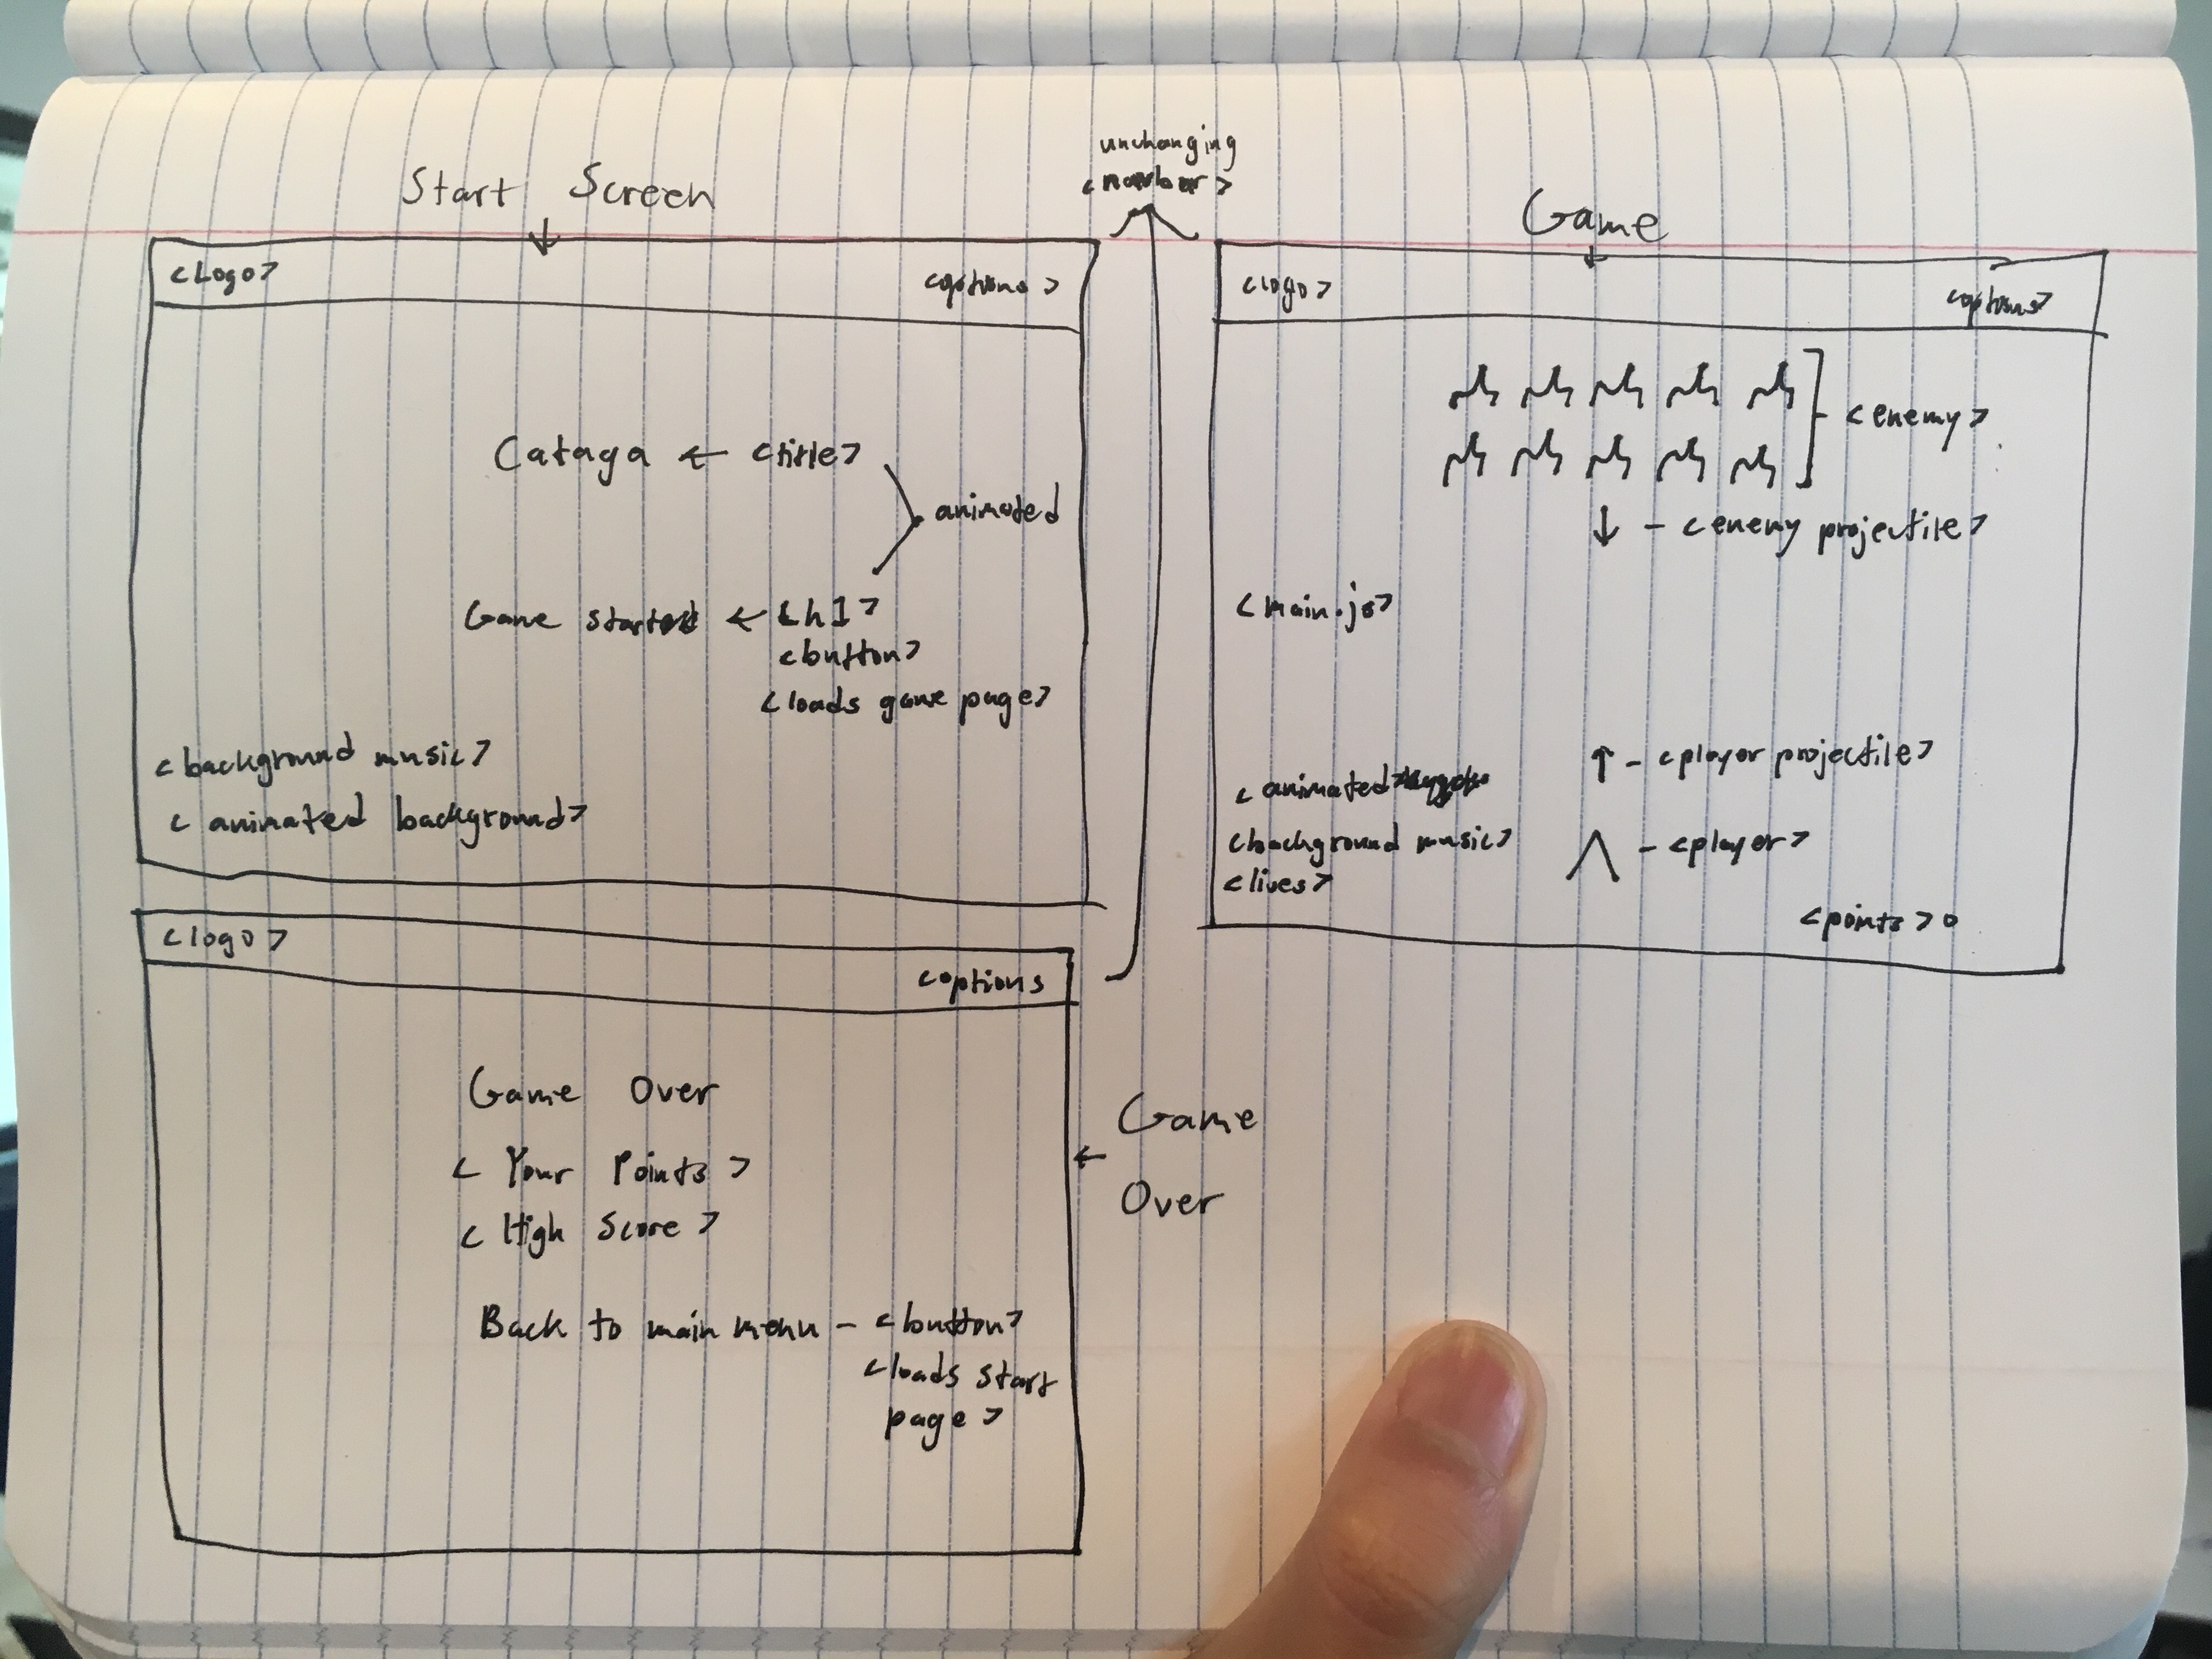 Start Screen
<Logo>
<options>
Cataga ← <title>
animated
Game start ← <h1>
<button>
<loads game page>
<background music>
<animated background>
unchanging
<navbar>
Game
<logo>
<options>
<enemy>
↓ - <enemy projectile>
<main.js>
↑ - <player projectile>
<animated>
<background music>
- <player>
<lives>
<points> 0
<logo>
<options
Game Over
< Your Points >
< High Score >
Back to main menu - <button>
<loads start
page >
Game
←
Over